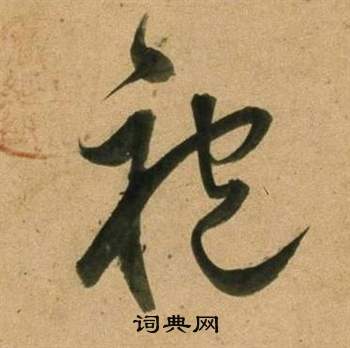 袍
词典网